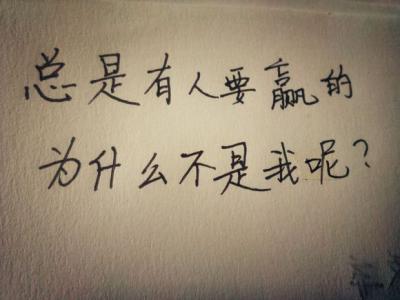 总是有人要赢的
为什么不是我呢？